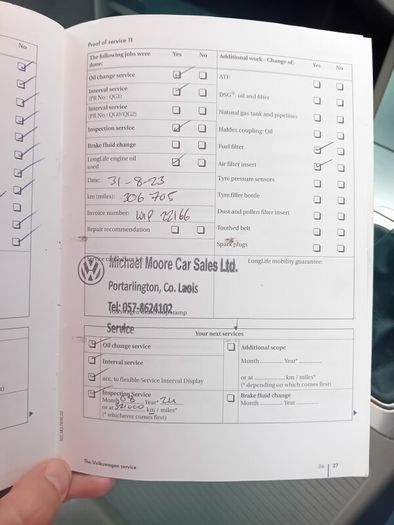 No
Proof of service 11
The following jobs were done: Yes No
Oil change service
Interval service (PR No.: QG1)
Interval service (PR No.: QG0/QG2)
Inspection service
Brake fluid change
LongLife engine oil used
Date: 31-8-23
km (miles): 306 705
Invoice number: WIP 22166
Repair recommendation
Additional work - Change of: Yes No
ATF
DSG®: oil and filter
Natural gas tank and pipelines
Haldex coupling: Oil
Fuel filter
Air filter insert
Tyre pressure sensors
Tyre filler bottle
Dust and pollen filter insert
Toothed belt
Spark plugs
Michael Moore Car Sales Ltd.
Portarlington, Co. Laois
Tel: 057-8624102
Service
LongLife mobility guarantee:
Your next services
Oil change service
Interval service
acc. to flexible Service Interval Display
Inspection Service
Month 08 Year* 24
or at 321000 km / miles*
(* whichever comes first)
Additional scope
Month Year*
or at km / miles*
(* depending on which comes first)
Brake fluid change
Month Year
The Volkswagen service
27